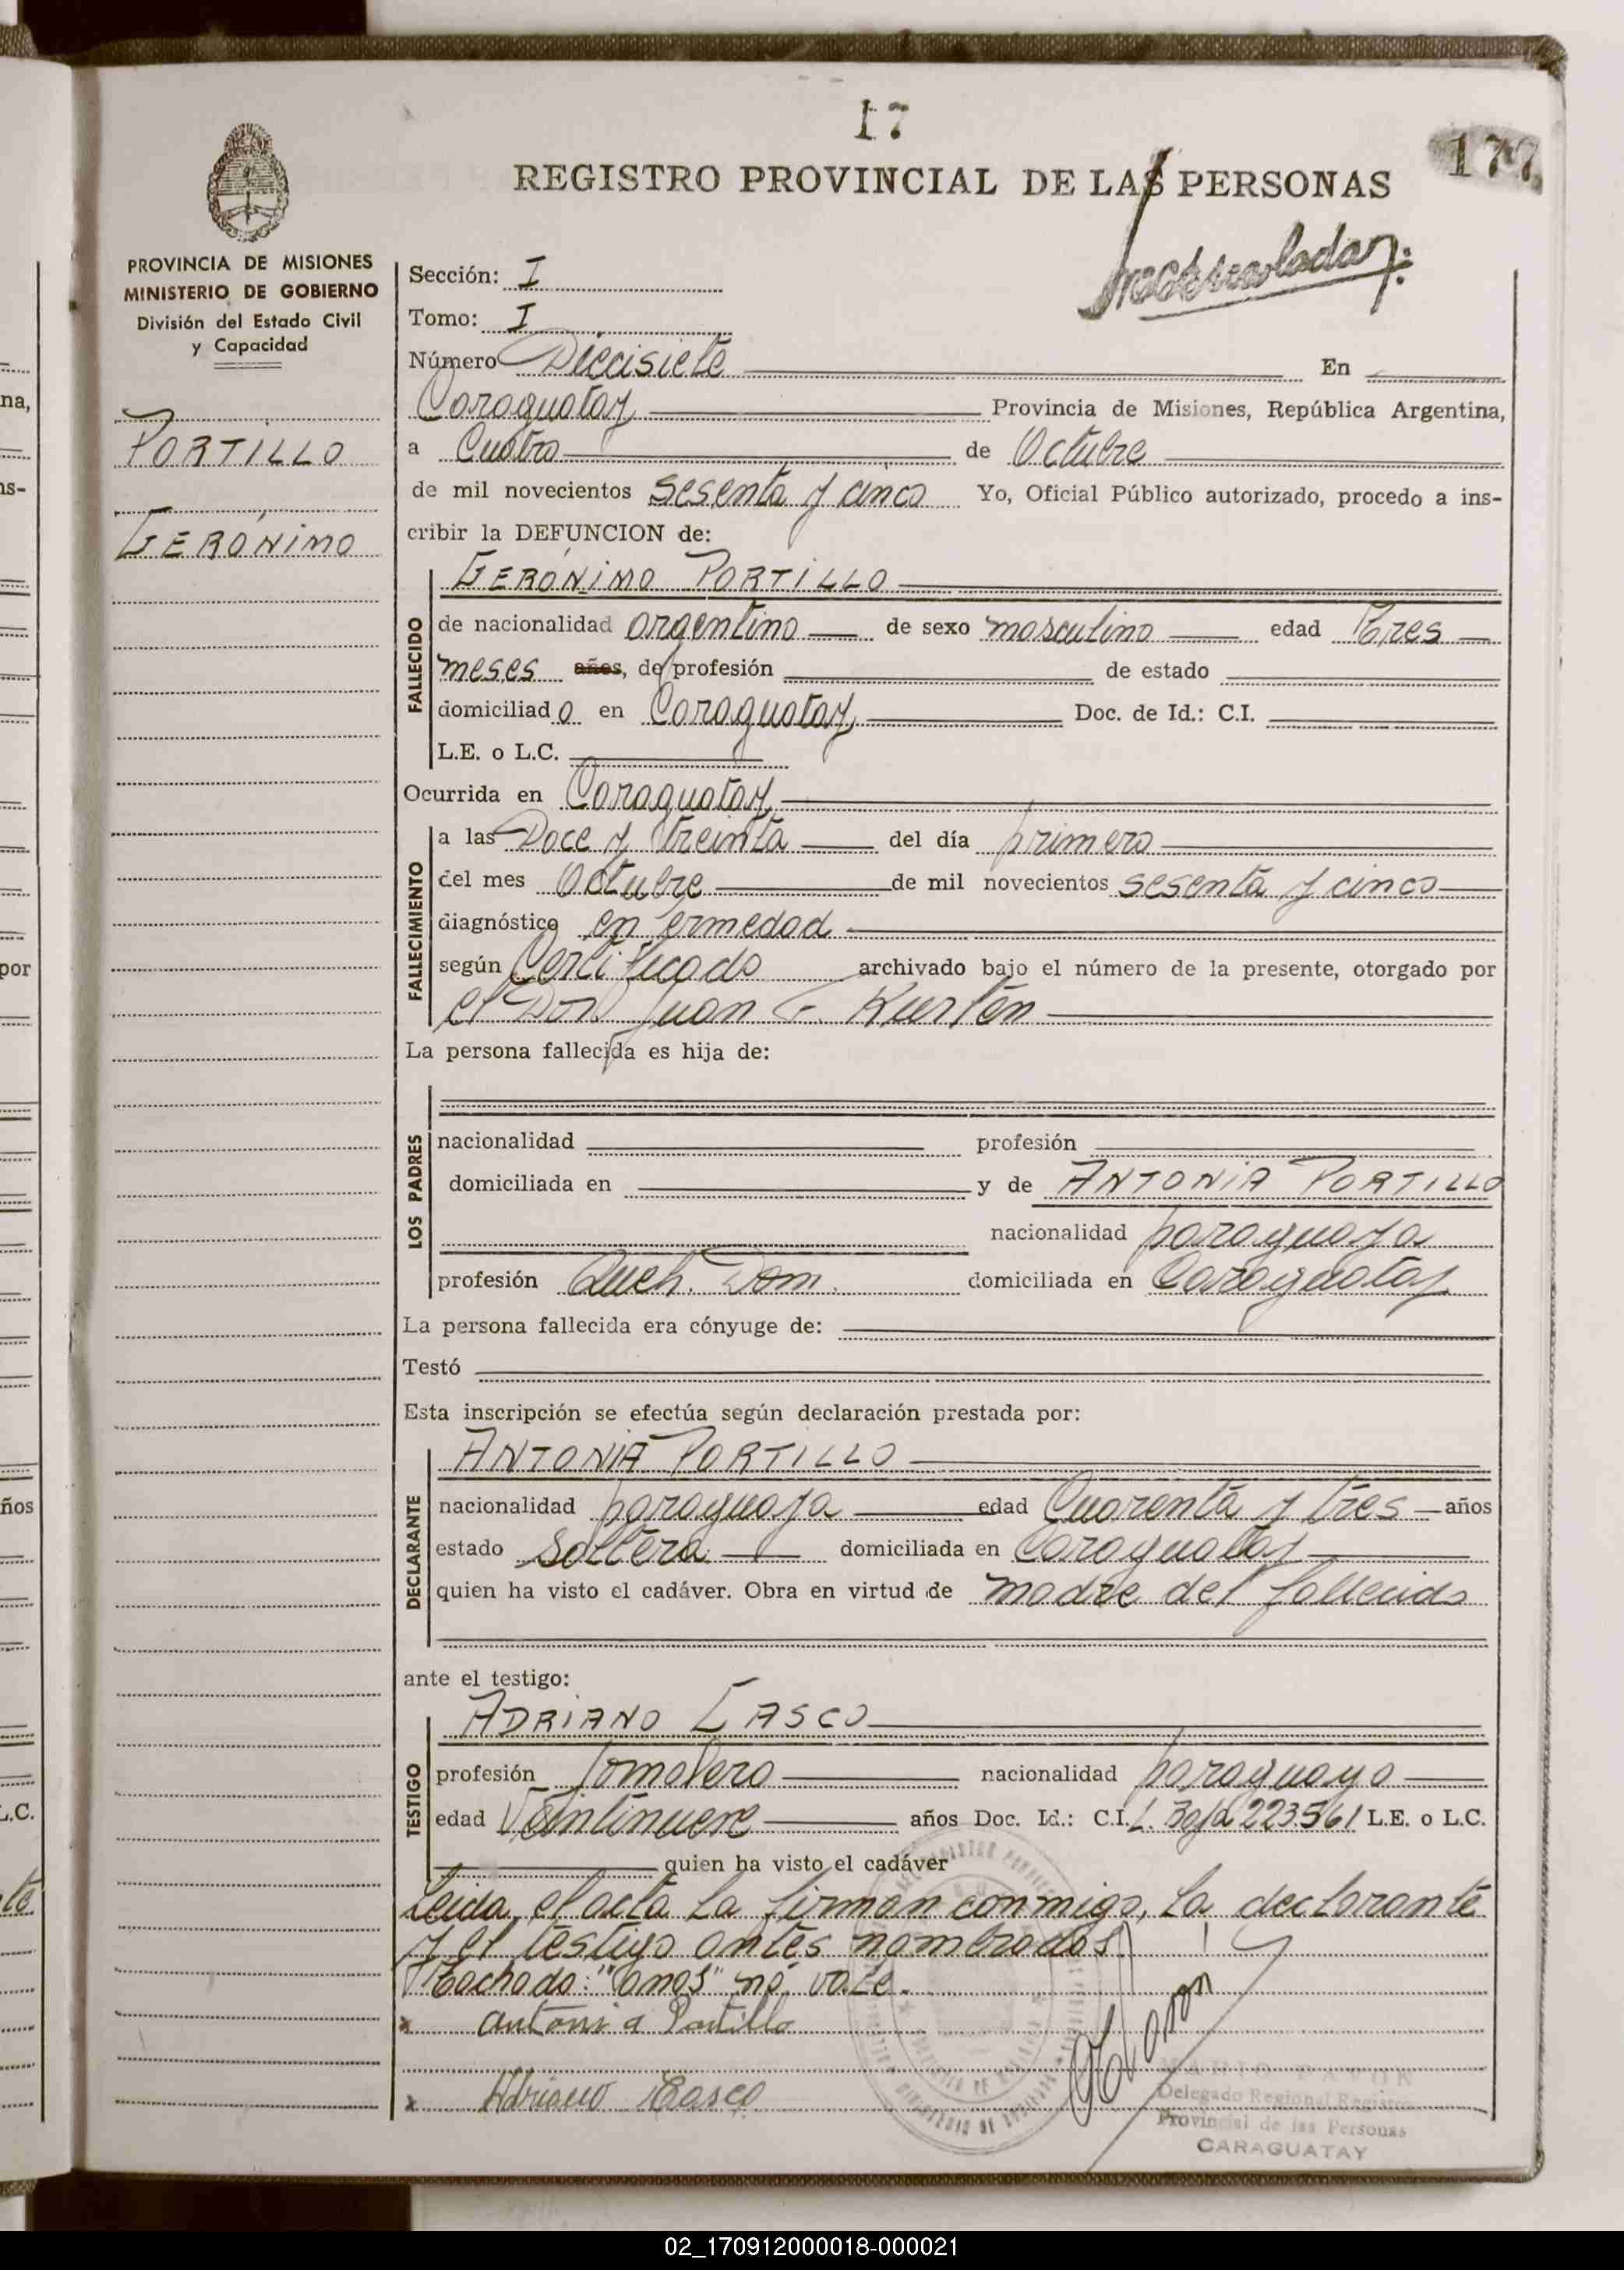 17
177
REGISTRO PROVINCIAL DE LAS PERSONAS
PROVINCIA DE MISIONES
MINISTERIO DE GOBIERNO
División del Estado Civil
y Capacidad
PORTILLO
GERÓNIMO
Sección: I
Tomo: I
Número Diecisiete En
Caraguatay Provincia de Misiones, República Argentina,
a Cuatro de Octubre
de mil novecientos sesenta y cinco Yo, Oficial Público autorizado, procedo a ins-
cribir la DEFUNCION de:
GERÓNIMO PORTILLO
FALLECIDO
de nacionalidad argentino de sexo masculino edad Tres
meses años, de profesión de estado
domiciliado en Caraguatay Doc. de Id.: C.I.
L.E. o L.C.
Ocurrida en Caraguatay
FALLECIMIENTO
a las Doce y treinta del día primero
del mes Octubre de mil novecientos sesenta y cinco
diagnóstico enfermedad
según Certificado archivado bajo el número de la presente, otorgado por
el Don Juan F. Kurtén
La persona fallecida es hija de:
LOS PADRES
nacionalidad profesión
domiciliada en y de ANTONIA PORTILLO
nacionalidad paraguaya
profesión Queh. Dom. domiciliada en Caraguatay
La persona fallecida era cónyuge de:
Testó
Esta inscripción se efectúa según declaración prestada por:
ANTONIA PORTILLO
DECLARANTE
nacionalidad paraguaya edad Cuarenta y tres años
estado Soltera domiciliada en Caraguatay
quien ha visto el cadáver. Obra en virtud de madre del fallecido
ante el testigo:
ADRIANO CASCO
TESTIGO
profesión Jornalero nacionalidad paraguayo
edad Veintinueve años Doc. Id.: C.I. 223561 L.E. o L.C.
quien ha visto el cadáver
Leida el acta la firman conmigo, la declarante
y el testigo antes nombrados
Tachado: "años" no vale.
x Antonia Portillo
x Adriano Casco
MARIO PAVON
Delegado Regional Registro
Provincial de las Personas
CARAGUATAY
02_170912000018-000021